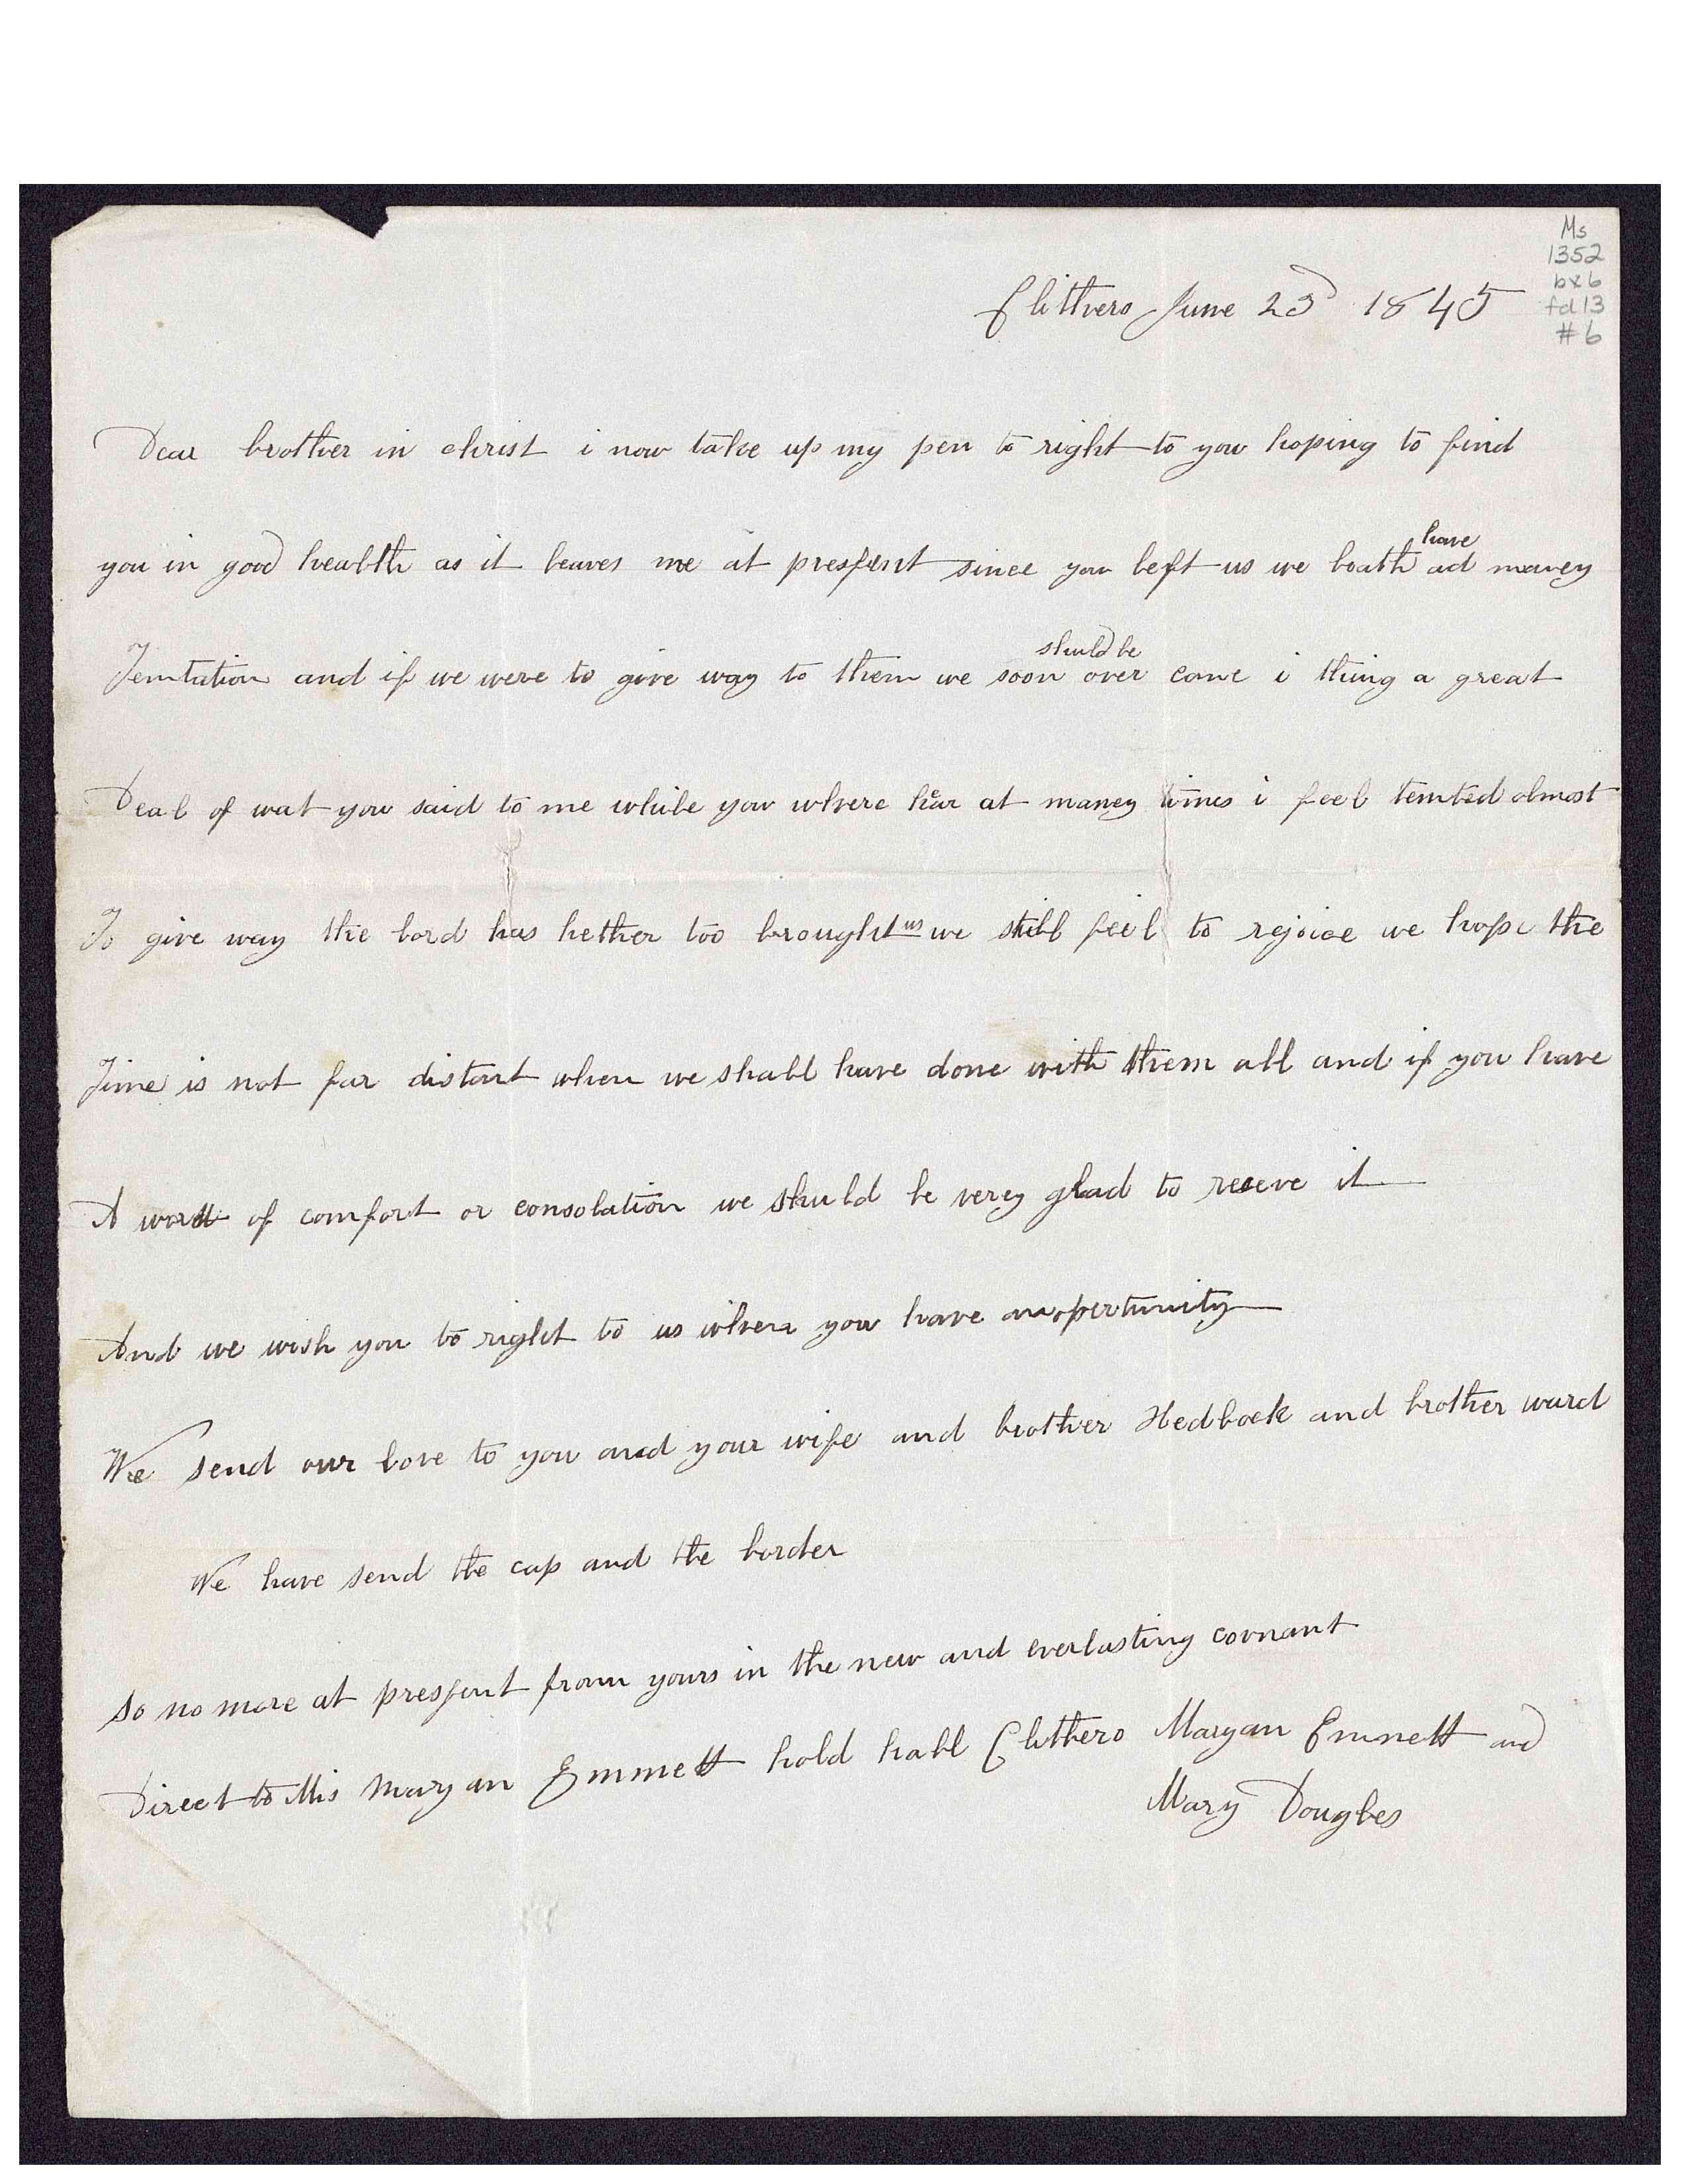 Ms
1352
bx 6
fd 13
#6
Clithero June 23d 1845
Dear brother in christ i now take up my pen to right to you hoping to find
have
you in good health as it leaves me at present since you left us we boath ad maney
shuld be
Temtation and if we were to give way to them we soon over come i thing a great
Deal of wat you said to me while you where hear at maney times i feel temted almost
To give way the lord has hether too brought us we still feel to rejoice we hope the
Time is not far distant when we shall have done with them all and if you have
A word of comfort or consolation we shuld be verey glad to receve it
And we wish you to right to us when you have an opertunity
We send our love to you and your wife and brother Hedlock and brother ward
We have send the cap and the border
So no more at present from yours in the new and everlasting covnant
Direct to Mis Mary an Emmett hold hall Clithero Maryan Emmett and
Mary Dougles